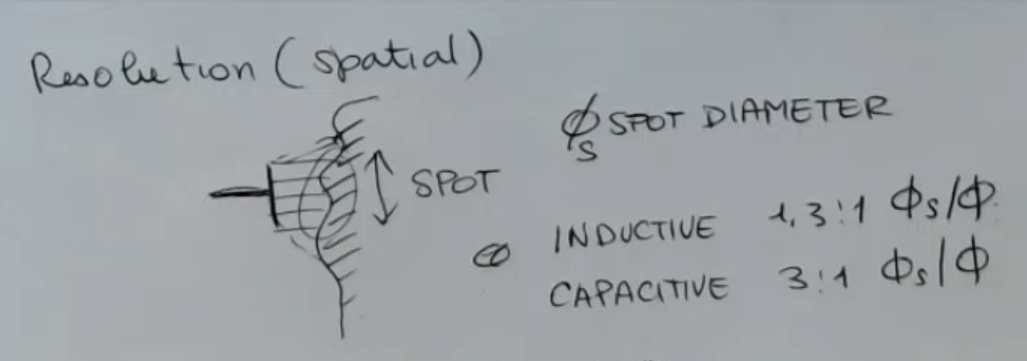 Resolution (spatial)
ϕs SPOT DIAMETER
SPOT
INDUCTIVE 1,3:1 ϕs/ϕ
CAPACITIVE 3:1 ϕs/ϕ